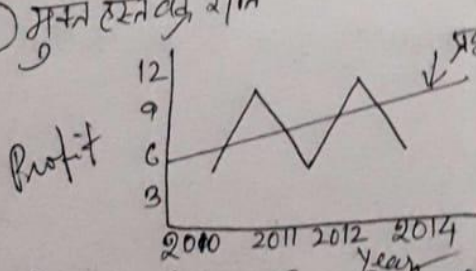 ) मुक्त हस्त वक्र रीति
प्र
12
9
6
3
Profit
2010 2011 2012 2014
Year